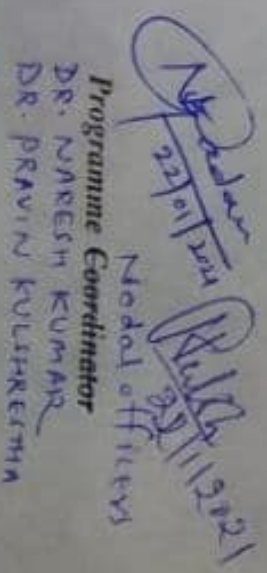 22/01/2021
22/1/2021
Nodal officers
Programme Coordinator
DR. NARESH KUMAR
DR. PRAVIN KULSHRESTHA